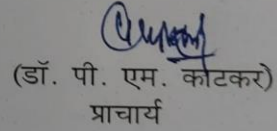 (डॉ. पी. एम. कोटकर)
प्राचार्य